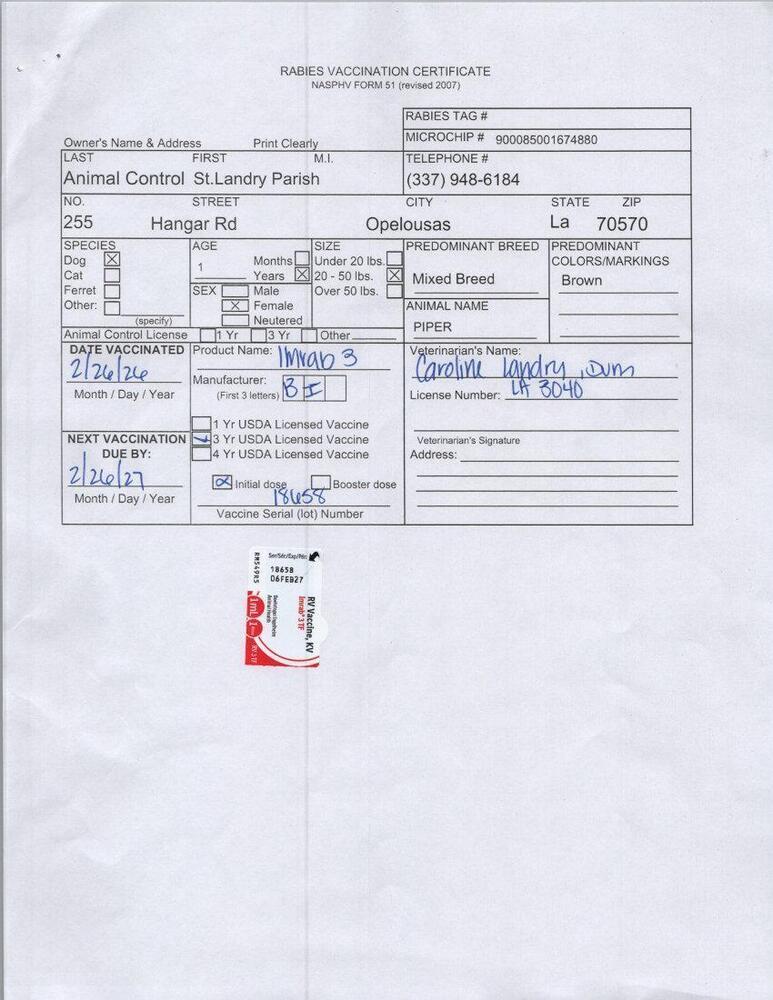 RABIES VACCINATION CERTIFICATE
NASPHV FORM 51 (revised 2007)
RABIES TAG #
Owner's Name & Address Print Clearly
MICROCHIP # 900085001674880
LAST FIRST M.I. TELEPHONE #
Animal Control St.Landry Parish (337) 948-6184
NO. STREET CITY STATE ZIP
255 Hangar Rd Opelousas La 70570
SPECIES AGE SIZE PREDOMINANT BREED PREDOMINANT
COLORS/MARKINGS
Dog X Months Under 20 lbs.
Cat 1 Years X 20 - 50 lbs. X Mixed Breed Brown
Ferret SEX Male Over 50 lbs.
Other: X Female ANIMAL NAME
(specify) Neutered PIPER
Animal Control License 1 Yr 3 Yr Other
DATE VACCINATED Product Name: Imrab 3 Veterinarian's Name:
2/26/26 Caroline Landry, DVM
Manufacturer: B I
Month / Day / Year (First 3 letters) License Number: LA 3040
1 Yr USDA Licensed Vaccine
NEXT VACCINATION 3 Yr USDA Licensed Vaccine Veterinarian's Signature
DUE BY: 4 Yr USDA Licensed Vaccine Address:
2/26/27
Initial dose Booster dose
Month / Day / Year 18658
Vaccine Serial (lot) Number
Ser/Sér/Exp/Pér:
18658
06FEB27
RM549R5
RV Vaccine, KV
Imrab® 3 TF
Boehringer Ingelheim
Animal Health
1 mL
RV 3 TF